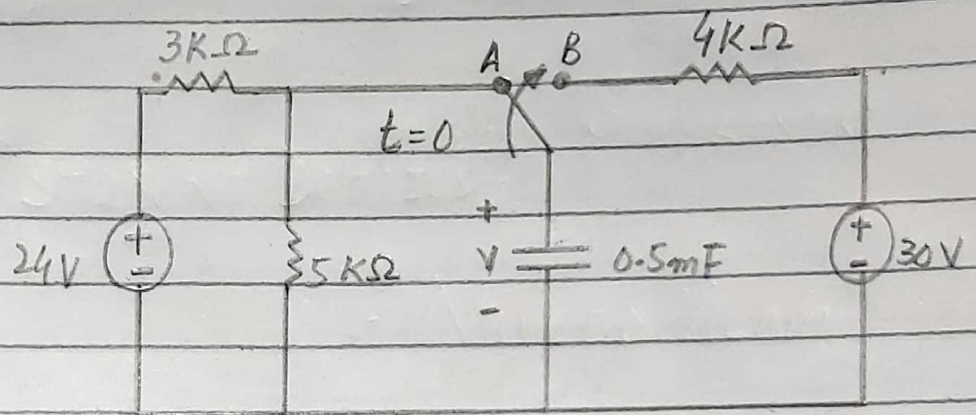 3KΩ
A B
4KΩ
t=0
24V
+
-
5KΩ
+
V
-
0.5mF
+
-
30V